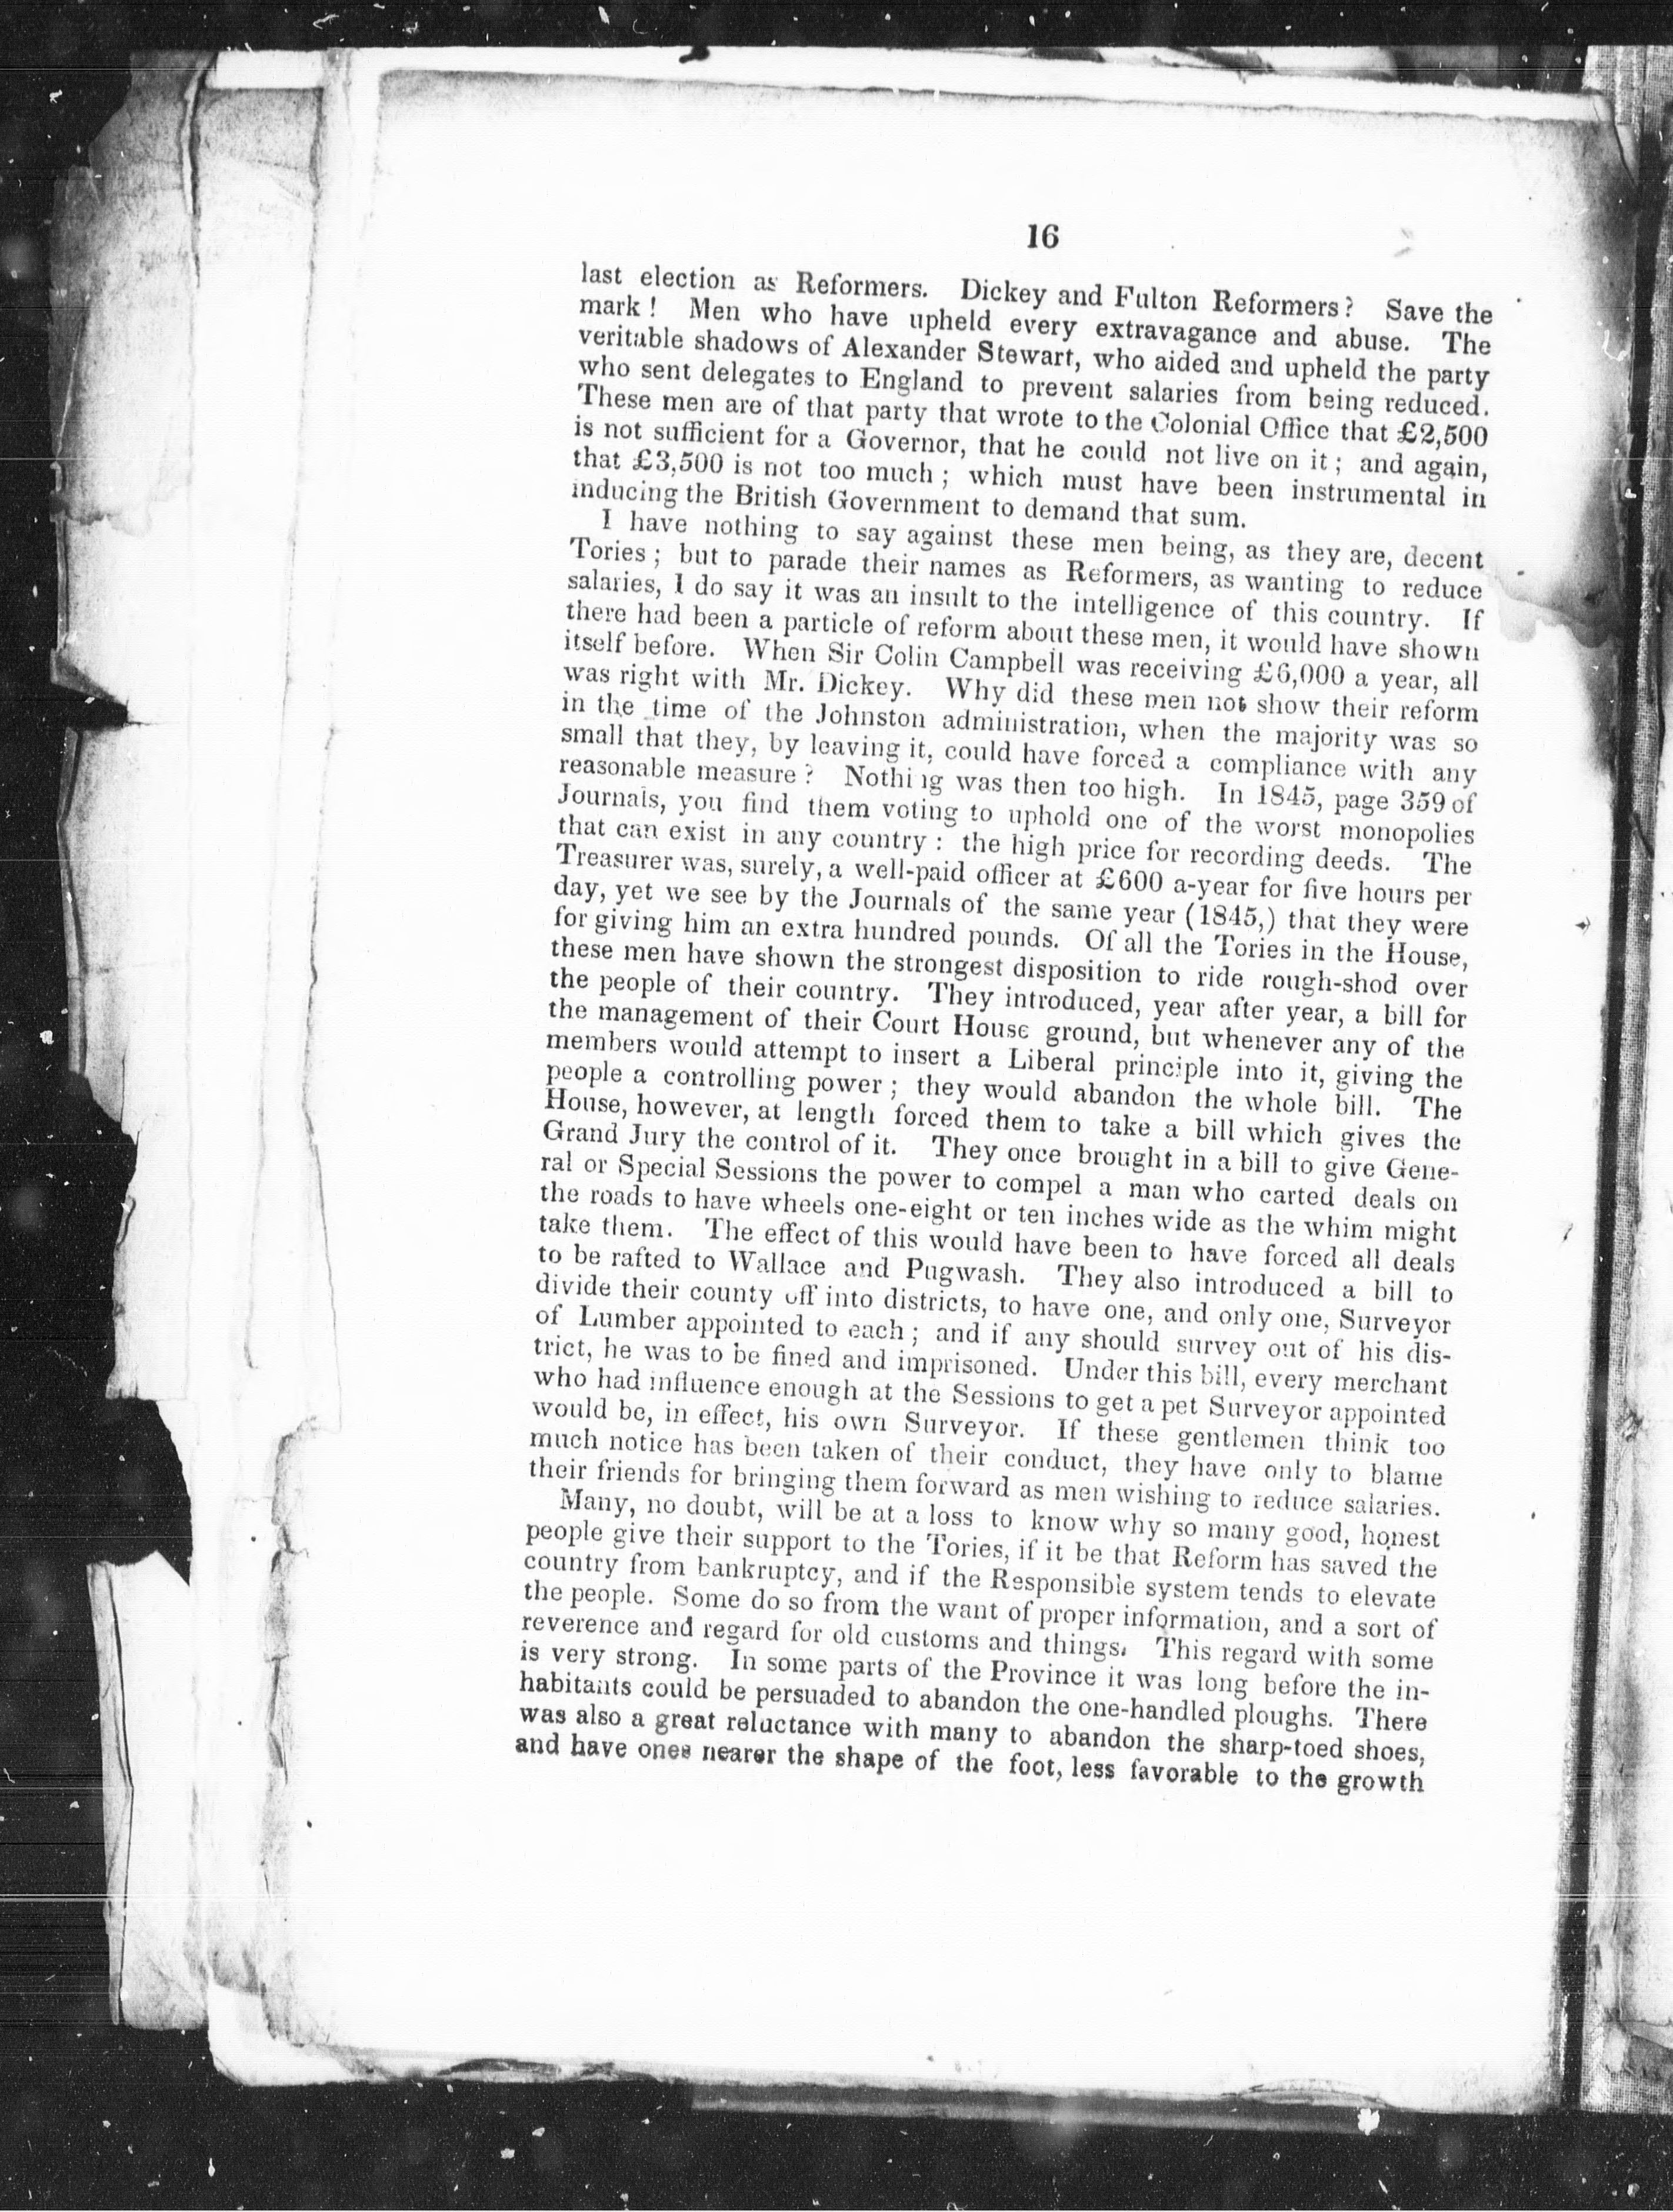 16
last election as Reformers. Dickey and Fulton Reformers? Save the
mark! Men who have upheld every extravagance and abuse. The
veritable shadows of Alexander Stewart, who aided and upheld the party
who sent delegates to England to prevent salaries from being reduced.
These men are of that party that wrote to the Colonial Office that £2,500
is not sufficient for a Governor, that he could not live on it; and again,
that £3,500 is not too much; which must have been instrumental in
inducing the British Government to demand that sum.
I have nothing to say against these men being, as they are, decent
Tories; but to parade their names as Reformers, as wanting to reduce
salaries, I do say it was an insult to the intelligence of this country. If
there had been a particle of reform about these men, it would have shown
itself before. When Sir Colin Campbell was receiving £6,000 a year, all
was right with Mr. Dickey. Why did these men not show their reform
in the time of the Johnston administration, when the majority was so
small that they, by leaving it, could have forced a compliance with any
reasonable measure? Nothi ig was then too high. In 1845, page 359 of
Journals, you find them voting to uphold one of the worst monopolies
that can exist in any country: the high price for recording deeds. The
Treasurer was, surely, a well-paid officer at £600 a-year for five hours per
day, yet we see by the Journals of the same year (1845,) that they were
for giving him an extra hundred pounds. Of all the Tories in the House,
these men have shown the strongest disposition to ride rough-shod over
the people of their country. They introduced, year after year, a bill for
the management of their Court House ground, but whenever any of the
members would attempt to insert a Liberal principle into it, giving the
people a controlling power; they would abandon the whole bill. The
House, however, at length forced them to take a bill which gives the
Grand Jury the control of it. They once brought in a bill to give Gene-
ral or Special Sessions the power to compel a man who carted deals on
the roads to have wheels one-eight or ten inches wide as the whim might
take them. The effect of this would have been to have forced all deals
to be rafted to Wallace and Pugwash. They also introduced a bill to
divide their county off into districts, to have one, and only one, Surveyor
of Lumber appointed to each; and if any should survey out of his dis-
trict, he was to be fined and imprisoned. Under this bill, every merchant
who had influence enough at the Sessions to get a pet Surveyor appointed
would be, in effect, his own Surveyor. If these gentlemen think too
much notice has been taken of their conduct, they have only to blame
their friends for bringing them forward as men wishing to reduce salaries.
Many, no doubt, will be at a loss to know why so many good, honest
people give their support to the Tories, if it be that Reform has saved the
country from bankruptcy, and if the Responsible system tends to elevate
the people. Some do so from the want of proper information, and a sort of
reverence and regard for old customs and things. This regard with some
is very strong. In some parts of the Province it was long before the in-
habitants could be persuaded to abandon the one-handled ploughs. There
was also a great reluctance with many to abandon the sharp-toed shoes,
and have ones nearer the shape of the foot, less favorable to the growth